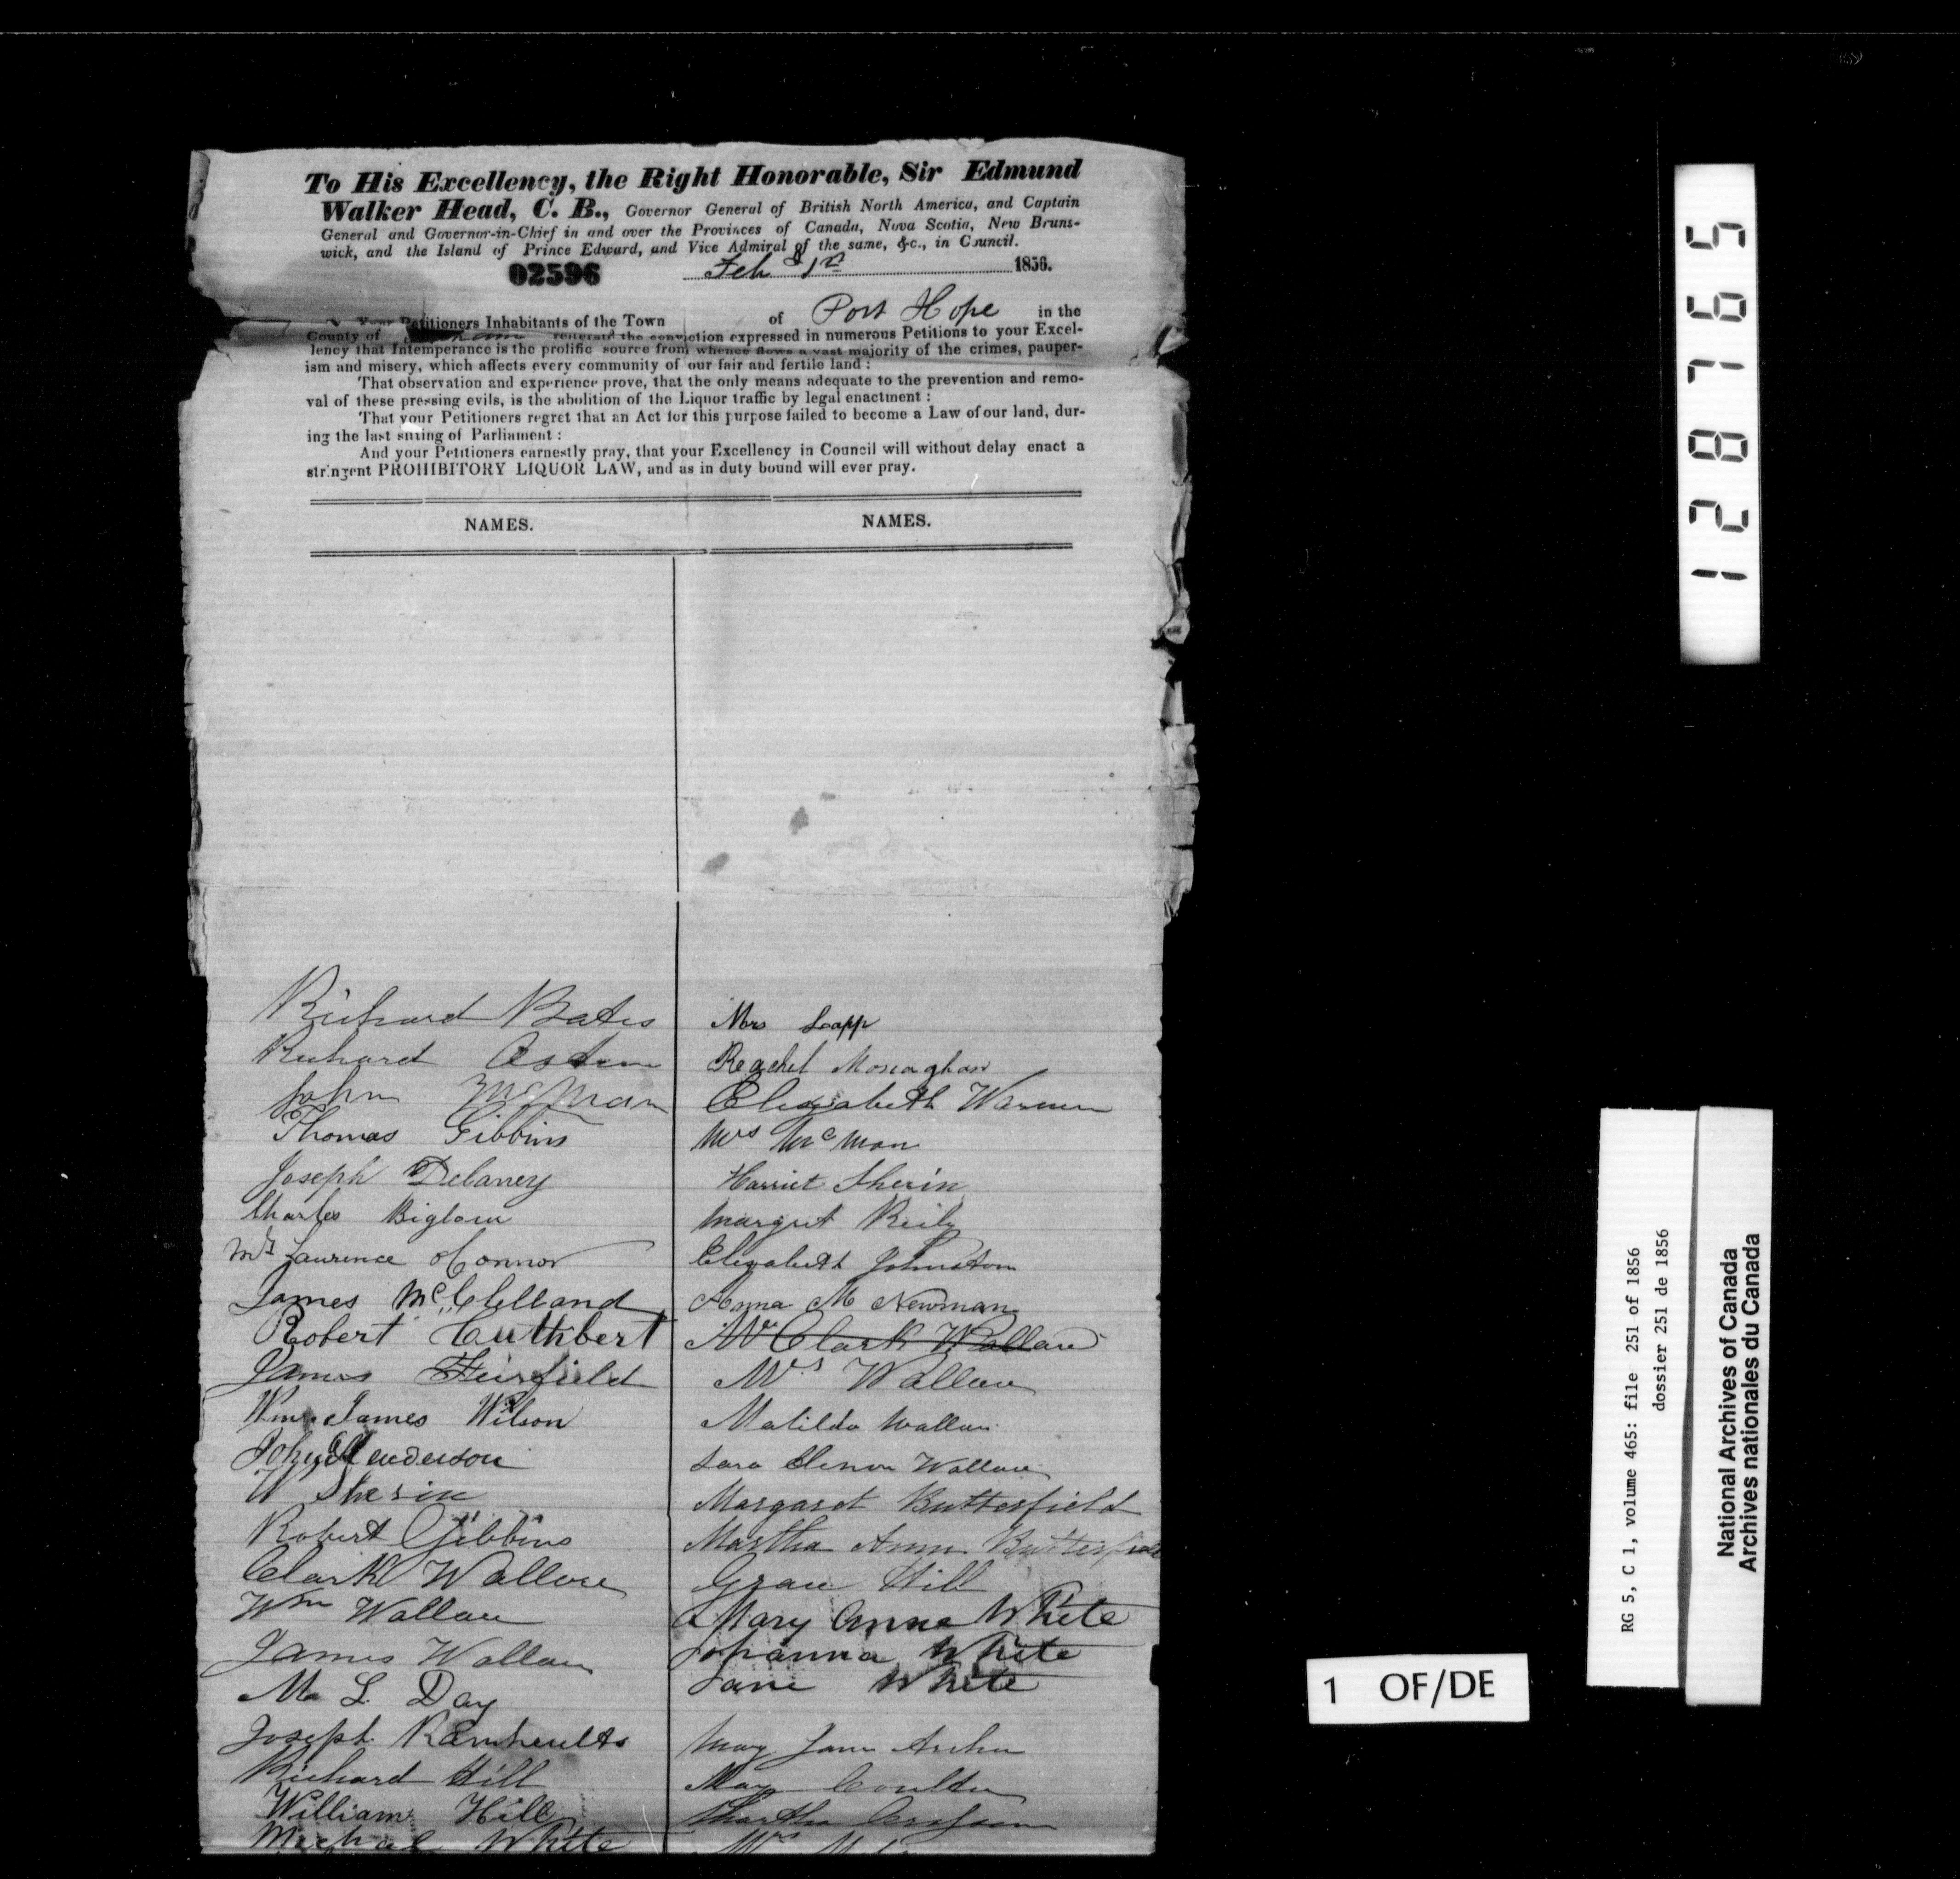 To His Excellency, the Right Honorable, Sir Edmund
Walker Head, C. B., Governor General of British North America, and Captain
General and Governor-in-Chief in and over the Provinces of Canada, Nova Scotia, New Bruns-
wick, and the Island of Prince Edward, and Vice Admiral of the same, &c., in Council.
02596
Feb 1856.
Your Petitioners Inhabitants of the Town of Port Hope in the
County of reiterate the conviction expressed in numerous Petitions to your Excel-
lency that Intemperance is the prolific source from whence flows a vast majority of the crimes, pauper-
ism and misery, which affects every community of our fair and fertile land :
That observation and experience prove, that the only means adequate to the prevention and remo-
val of these pressing evils, is the abolition of the Liquor traffic by legal enactment :
That your Petitioners regret that an Act for this purpose failed to become a Law of our land, dur-
ing the last sitting of Parliament :
And your Petitioners earnestly pray, that your Excellency in Council will without delay enact a
stringent PROHIBITORY LIQUOR LAW, and as in duty bound will ever pray.
NAMES.
Richard Bates
Richard
John McMan
Thomas Gibbins
Joseph Delaney
Charles Biglow
Laurence O'Connor
James McClelland
Robert Cuthbert
James Fairfield
Wm James Wilson
John Henderson
W Sherin
Robert Gibbins
Clark Wallace
Wm Wallace
James Wallace
L. Day
Joseph
Richard Hill
William Hill
Michael White
NAMES.
Mrs Lapp
Reachel Monaghan
Elizabeth Warren
Mrs McMan
Harriet Sherin
Margret Reily
Elizabeth Johnston
Anna M Newman
Mr Clark Wallace
Mrs Wallace
Matilda Wallace
Sara Wallace
Margaret Butterfield
Martha Ann Butterfield
Grace Hill
Mary Anne White
Johanna White
Jane White
Mary Jane Archer
Mary Coulter
Martha
128765
RG 5, C 1, volume 465: file 251 of 1856
dossier 251 de 1856
National Archives of Canada
Archives nationales du Canada
1 OF/DE